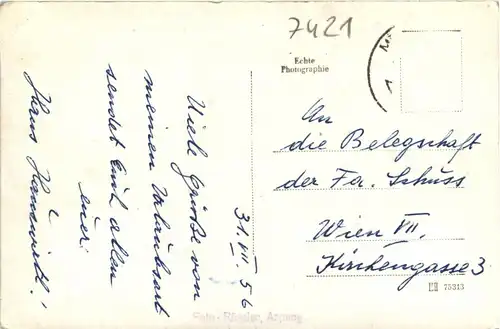 7421
Echte
Photographie
31. VII. 56
Viele Grüße von
meinem Urlaubsort
sendet Euch allen
euer
Hans
An
die Belegschaft
der Fa. Schuss
Wien VII.
Kirchengasse 3
75313
Foto - Rössler, Aspang